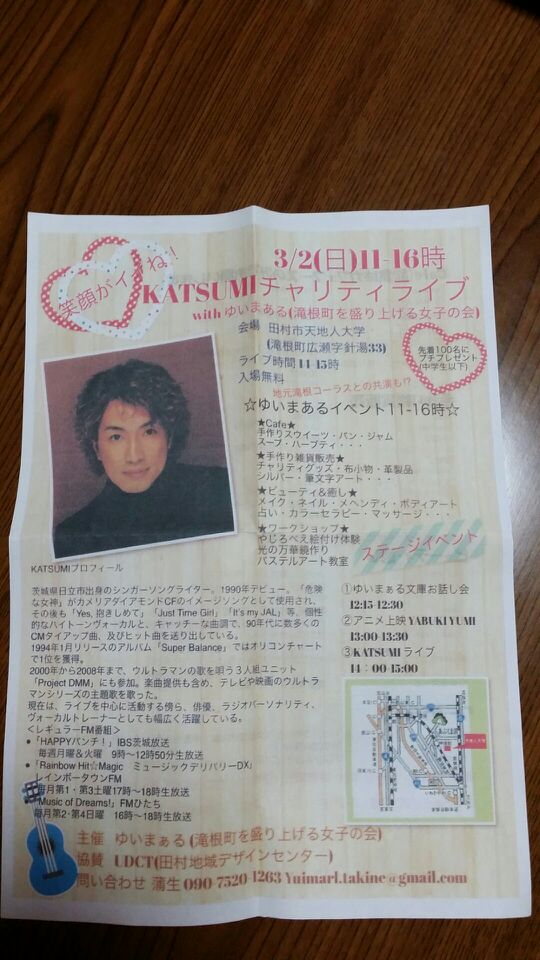 笑顔がイイね!
3/2(日)11-16時
KATSUMIチャリティライブ
with ゆいまある(滝根町を盛り上げる女子の会)
会場 田村市天地人大学
(滝根町広瀬字針湯33)
ライブ時間14-15時
入場無料
先着100名に
プチプレゼント
(中学生以下)
地元滝根コーラスとの共演も!?
☆ゆいまあるイベント11-16時☆
★Cafe★
手作りスウイーツ・パン・ジャム
スープ・ハーブティ・・・
★手作り雑貨販売★
チャリティグッズ・布小物・革製品
シルバー・筆文字アート・・・
★ビューティ&癒し★
メイク・ネイル・メヘンディ・ボディアート
占い・カラーセラピー・マッサージ・・・
★ワークショップ★
やじろべえ絵付け体験
光の万華鏡作り
パステルアート教室
ステージイベント
①ゆいまぁる文庫お話し会
12:15-12:30
②アニメ上映 YABUKI YUMI
13:00-13:30
③KATSUMI ライブ
14:00-15:00
KATSUMIプロフィール
茨城県日立市出身のシンガーソングライター。1990年デビュー。「危険
な女神」がカメリアダイアモンドCFのイメージソングとして使用され、
その後も「Yes, 抱きしめて」「Just Time Girl」「It's my JAL」等、個性
的なハイトーンヴォーカルと、キャッチーな曲調で、90年代に数多くの
CMタイアップ曲、及びヒット曲を送り出している。
1994年1月リリースのアルバム「Super Balance」ではオリコンチャート
で1位を獲得。
2000年から2008年まで、ウルトラマンの歌を唄う3人組ユニット
「Project DMM」にも参加。楽曲提供も含め、テレビや映画のウルトラ
マンシリーズの主題歌を歌った。
現在は、ライブを中心に活動する傍ら、俳優、ラジオパーソナリティ、
ヴォーカルトレーナーとしても幅広く活躍している。
<レギュラーFM番組>
●「HAPPYパンチ!」IBS茨城放送
毎週月曜&火曜 9時〜12時50分生放送
●「Rainbow Hit☆Magic ミュージックデリバリーDX」
レインボータウンFM
毎月第1・第3土曜17時〜18時生放送
「Music of Dreams!」FMひたち
毎月第2・第4日曜 16時〜18時生放送
主催 ゆいまぁる(滝根町を盛り上げる女子の会)
協賛 UDCT(田村地域デザインセンター)
問い合わせ 蒲生 090-7520-1263 Yuimarl.takine@gmail.com